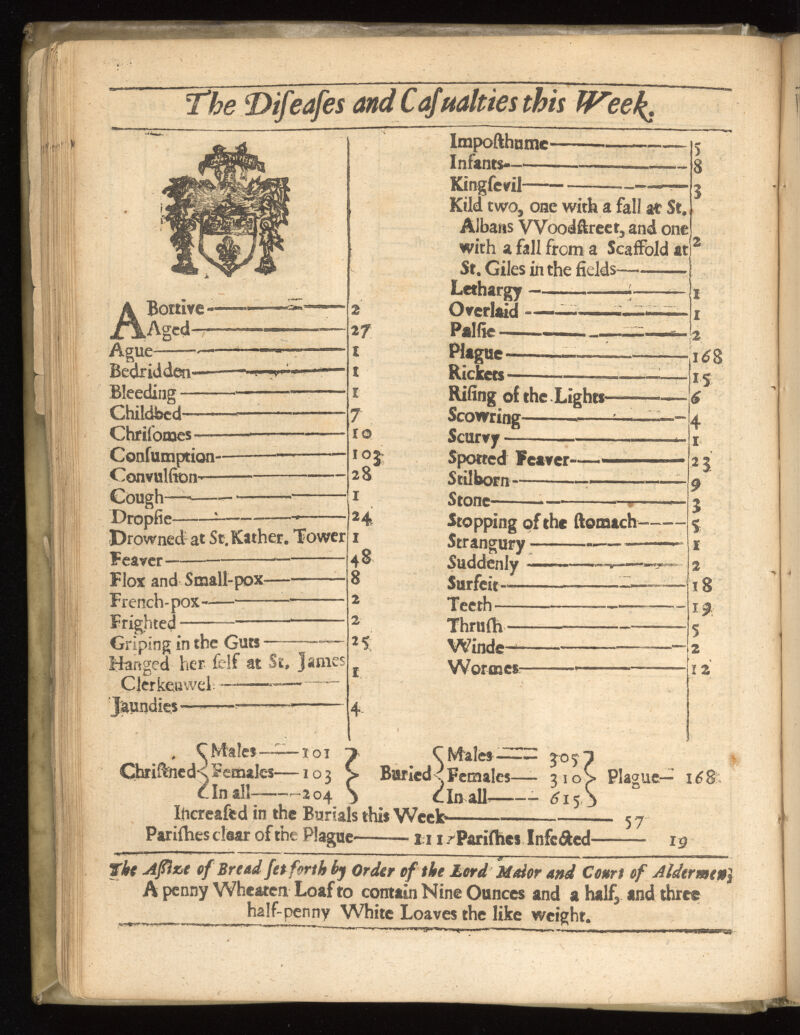 The Diſeaſes and Caſualties this Week.
ABortive 2
Aged 27
Ague 1
Bedridden 1
Bleeding 1
Childbed 7
Chriſomes 10
Conſumption 103
Convulſion 28
Cough 1
Dropſie 24
Drowned at St. Kather. Tower 1
Feaver 48
Flox and Small-pox 8
French-pox 2
Frighted 2
Griping in the Guts 25
Hanged her ſelf at St. James
Clerkenwel 1
Jaundies 4
Impoſthume 5
Infants 8
Kingſevil 3
Kild two, one with a fall at St.
Albans VVoodſtreet, and one
with a fall from a Scaffold at 2
St. Giles in the fields
Lethargy 1
Overlaid 1
Palſie 2
Plague 168
Rickets 15
Riſing of the Lights 6
Scowring 4
Scurvy 1
Spotted Feaver 23
Stilborn 9
Stone 3
Stopping of the ſtomach 5
Strangury 1
Suddenly 2
Surfeit 18
Teeth 19
Thruſh 5
VVinde 2
VVormes 12
Chriſtned Males 101
Females 103
In all 204
Buried Males 305
Females 310
In all 615
Plague 168
Increaſed in the Burials this Week 57
Pariſhes clear of the Plague 111 Pariſhes Infected 19
The Aſſize of Bread ſet forth by Order of the Lord Maior and Court of Aldermen,
A penny Wheaten Loaf to contain Nine Ounces and a half, and three
half-penny White Loaves the like weight.